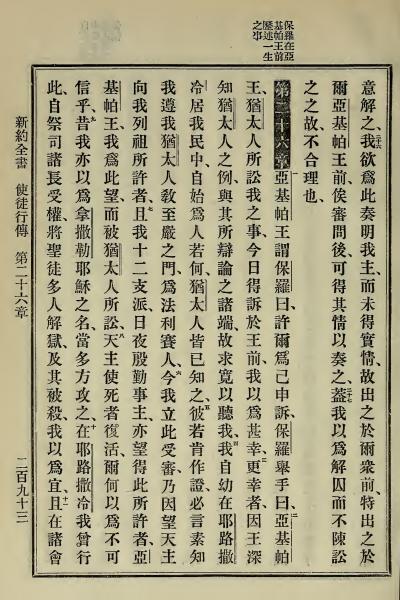 保羅在亞
基帕王前
歷述一生
之事
意解之、二十六我欲爲此奏明我主、而未得實情、故出之於爾衆前、特出之於
爾亞基帕王前、俟審問後、可得其情以奏之、二十七蓋我以爲解囚而不陳訟
之之故、不合理也、
第二十六章 一亞基帕王謂保羅曰、許爾爲己申訴、保羅舉手曰、二亞基帕
王、猶太人所訟我之事、今日得訴於王前、我以爲甚幸、三更幸者、因王深
知猶太人之例、與其所辯論之諸端、故求寬以聽我、四我自幼在耶路撒
冷、居我民中、自始爲人若何、猶太人皆已知之、五彼若肯作證、必言素知
我遵我猶太人敎至嚴之門、爲法利賽人、六今我立此受審、乃因望天主
向我列祖所許者、七且我十二支派、日夜殷勤事主、亦望得此所許者、亞
基帕王、我爲此望、而被猶太人所訟、八天主使死者復活、爾何以爲不可
信乎、九昔我亦以爲拿撒勒耶穌之名、當多方攻之、十在耶路撒冷我曾行
此、自祭司諸長受權、將聖徒多人解獄、及其被殺、我以爲宜、十一且在諸會
新約全書 使徒行傳 第二十六章 二百九十三